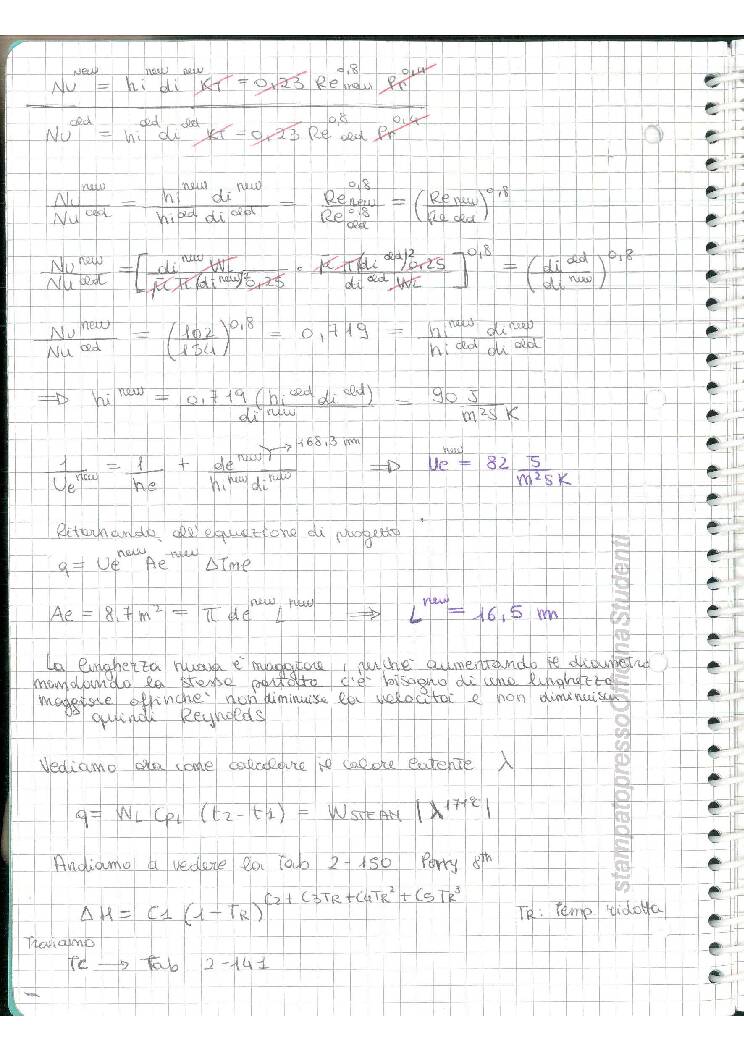 Nu^new = hi^new di^new KT = 0,23 Re^0,8 new Pr^0,4
Nu^old = hi^old di^old KT = 0,23 Re^0,8 old Pr^0,4
Nu^new / Nu^old = hi^new di^new / hi^old di^old = Re^0,8 new / Re^0,8 old = (Re new / Re old)^0,8
Nu^new / Nu^old = [di^new WL / μ π (di^new)² 0,25 · μ π (di^old)² 0,25 / di^old WL]^0,8 = (di^old / di^new)^0,8
Nu^new / Nu^old = (102 / 134)^0,8 = 0,719 = hi^new di^new / hi^old di^old
⇒ hi^new = 0,719 (hi^old di^old) / di^new = 90 J / m²s K
1 / Ue^new = 1 / he + de^new / hi^new di^new → 168,3 mm ⇒ Ue^new = 82 J / m²s K
Ritornando all'equazione di progetto
q = Ue^new Ae^new ΔTme
Ae = 8,7 m² = π de^new L^new ⇒ L^new = 16,5 m
La lunghezza nuova è maggiore, perché aumentando il diametro
mandando la stessa portata c'è bisogno di una lunghezza
maggiore affinché non diminuisca la velocità e non diminuisca
quindi Reynolds
Vediamo ora come calcolare il calore latente λ
q = WL CpL (t2 - t1) = WSTEAM |λ^171°C|
Andiamo a vedere la Tab 2-150 Perry 8th
ΔH = C1 (1 - TR)^C2 + C3TR + C4TR² + C5TR³ TR: Temp ridotta
Troviamo
Tc → Tab 2-141
stampatopressoOfficinaStudenti